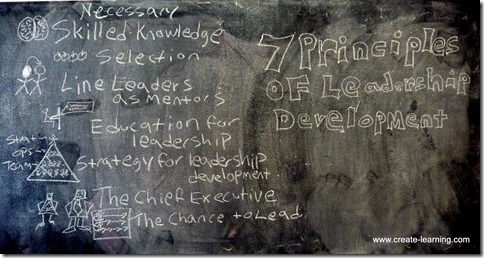 Necessary
Skilled Knowledge
Selection
Line Leaders
as Mentors
Education for
leadership
Strategy for leadership
development
The Chief Executive
The Chance to Lead
Strat
ops
Team
7 Principles
OF Leadership
Development
www.create-learning.com